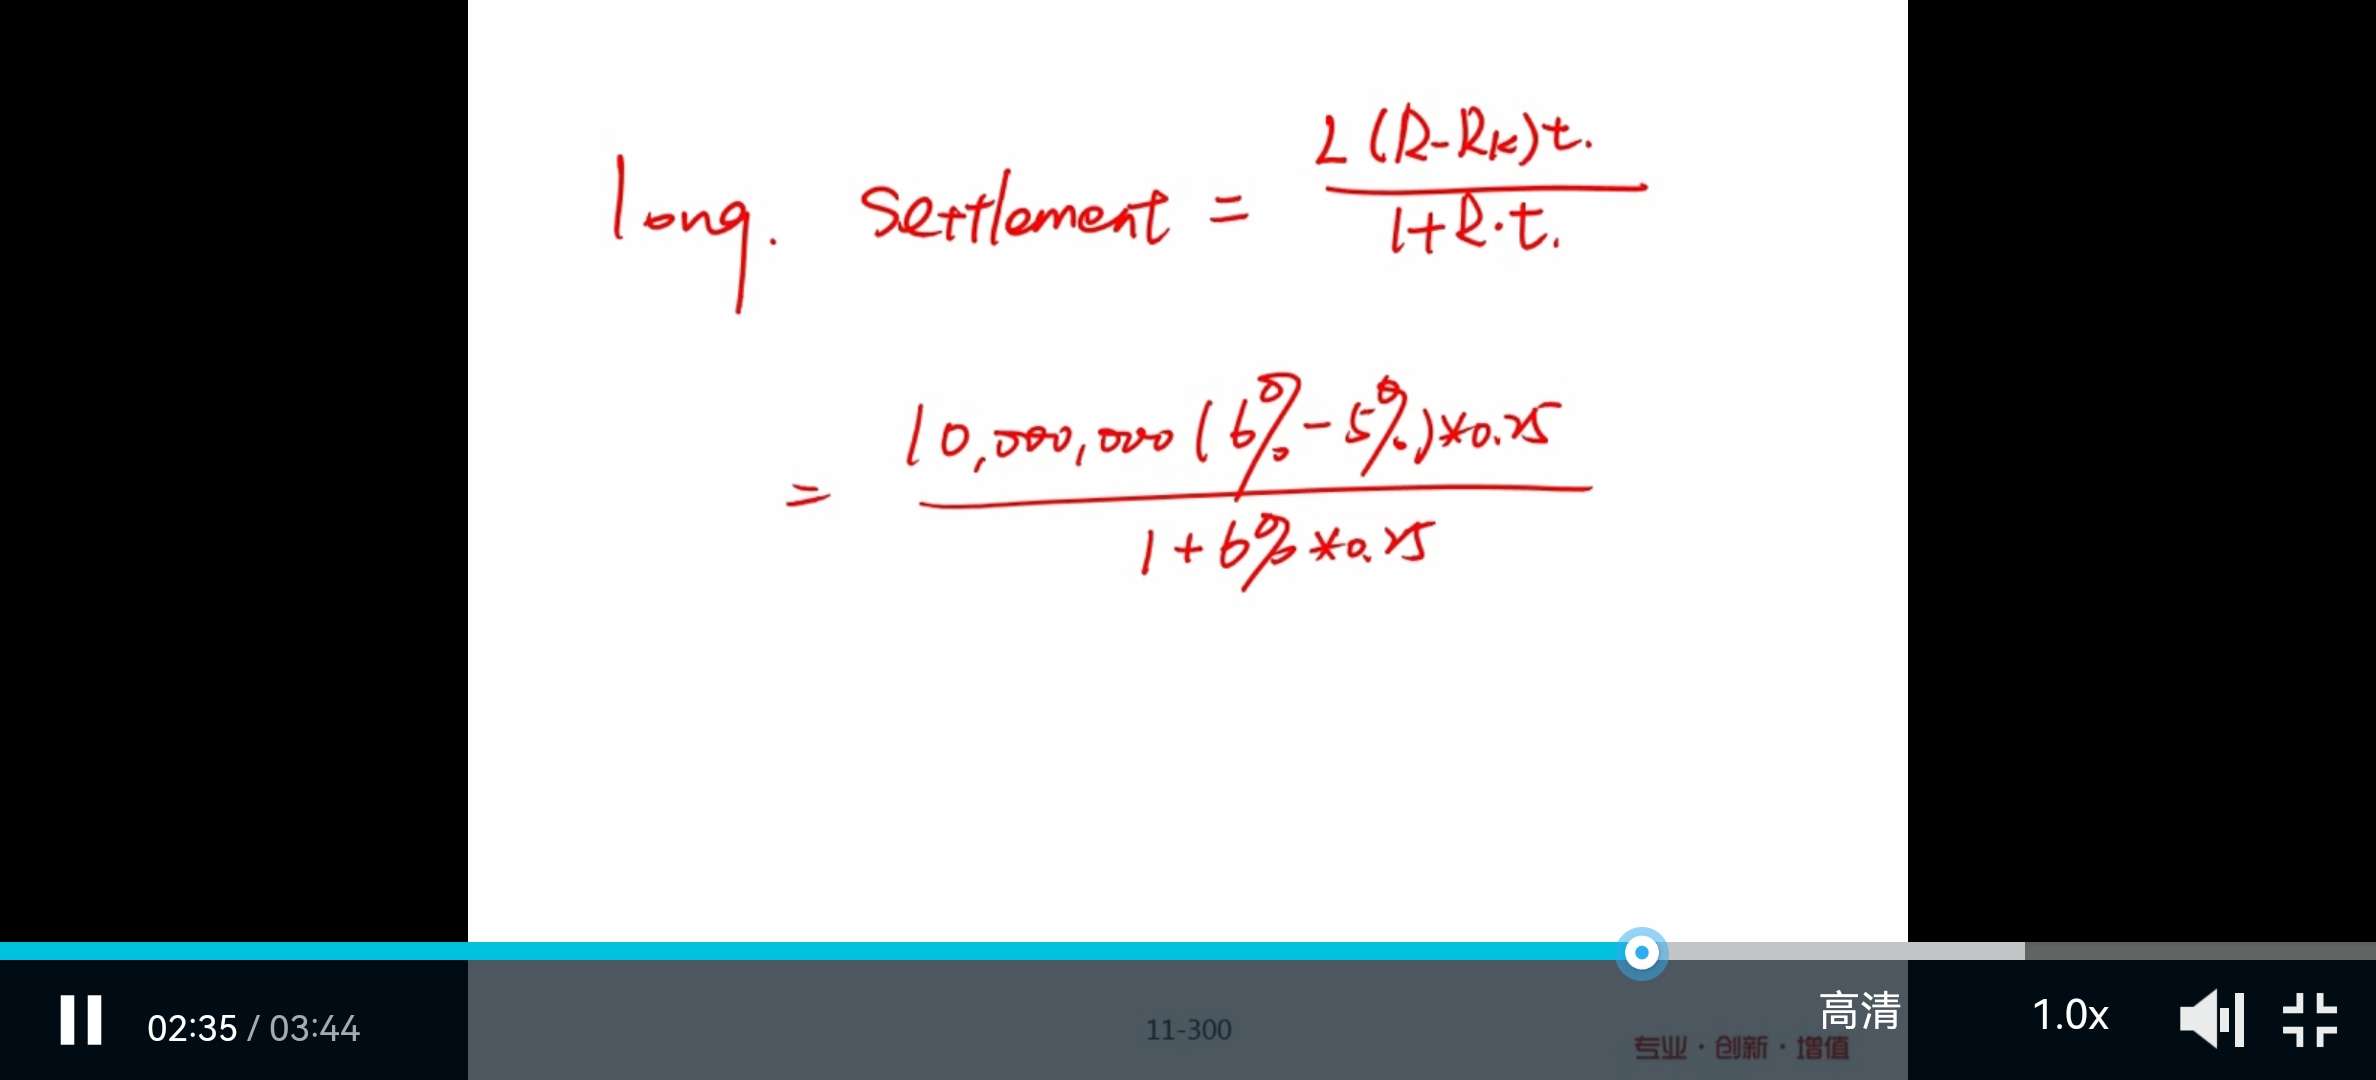 L (R-RK)t.
long. Settlement = 
1+R·t.
10,000,000 (6%-5%)*0.25
=
1+6%*0.25
02:35 / 03:44
11-300
高清
1.0x
专业·创新·增值